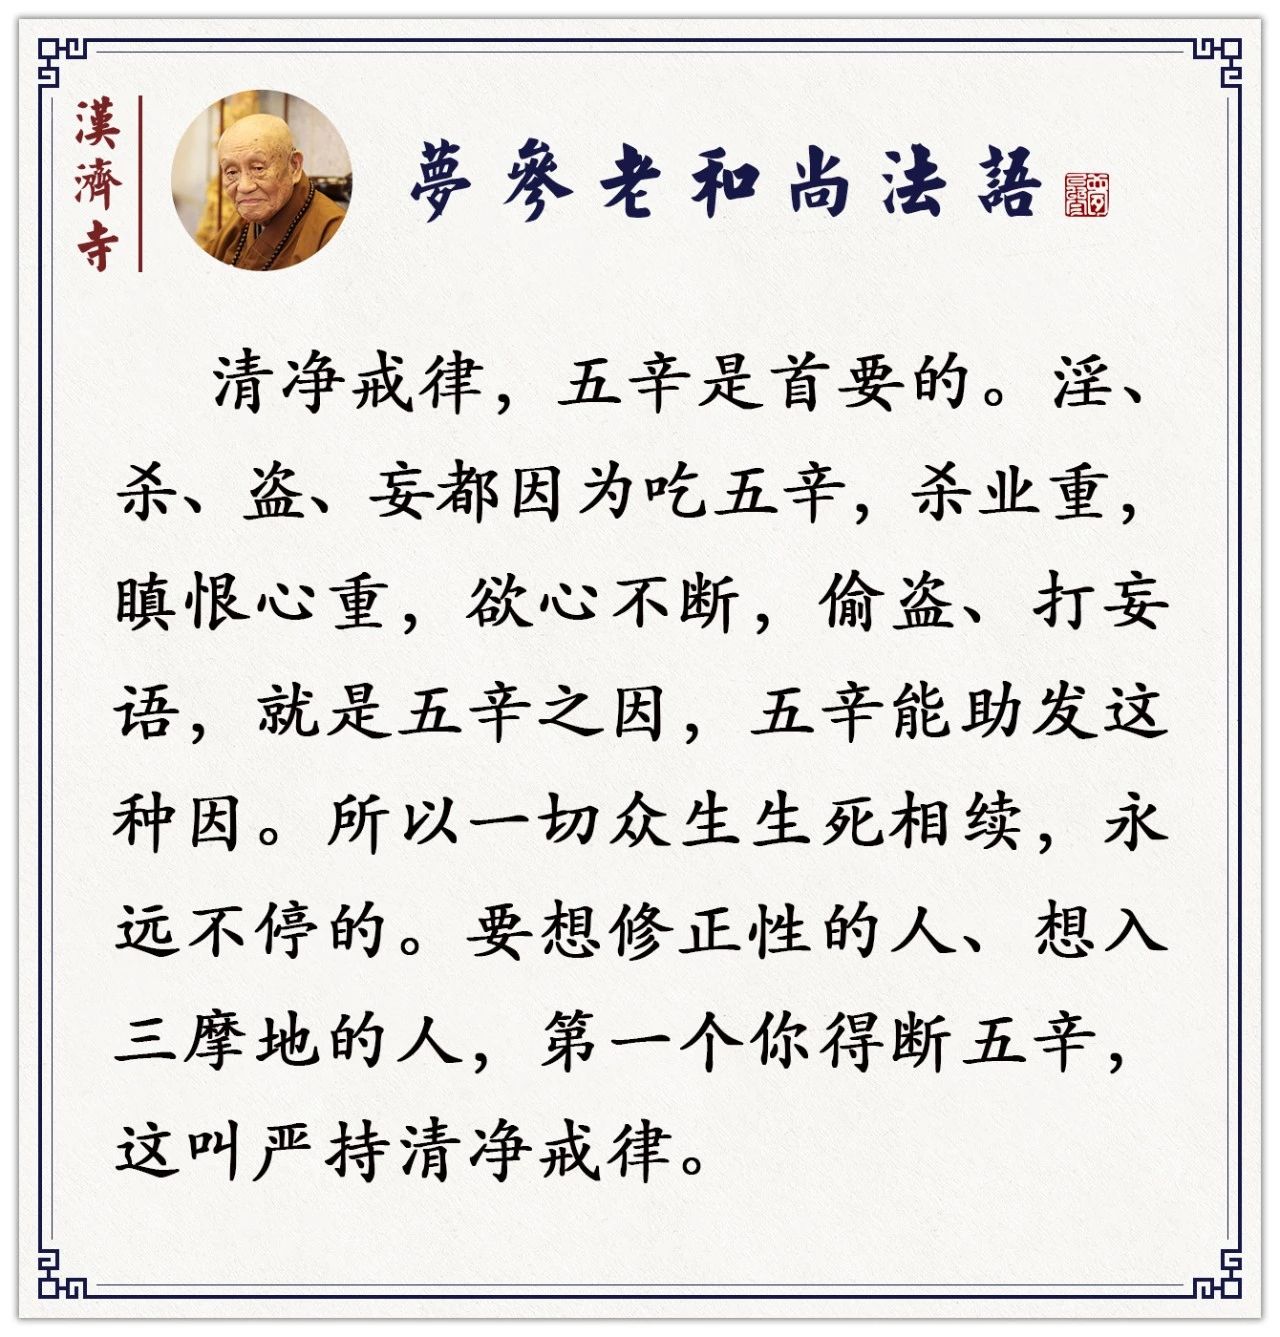 漢濟寺
夢參老和尚法語
清净戒律，五辛是首要的。淫、
杀、盗、妄都因为吃五辛，杀业重，
瞋恨心重，欲心不断，偷盗、打妄
语，就是五辛之因，五辛能助发这
种因。所以一切众生生死相续，永
远不停的。要想修正性的人、想入
三摩地的人，第一个你得断五辛，
这叫严持清净戒律。